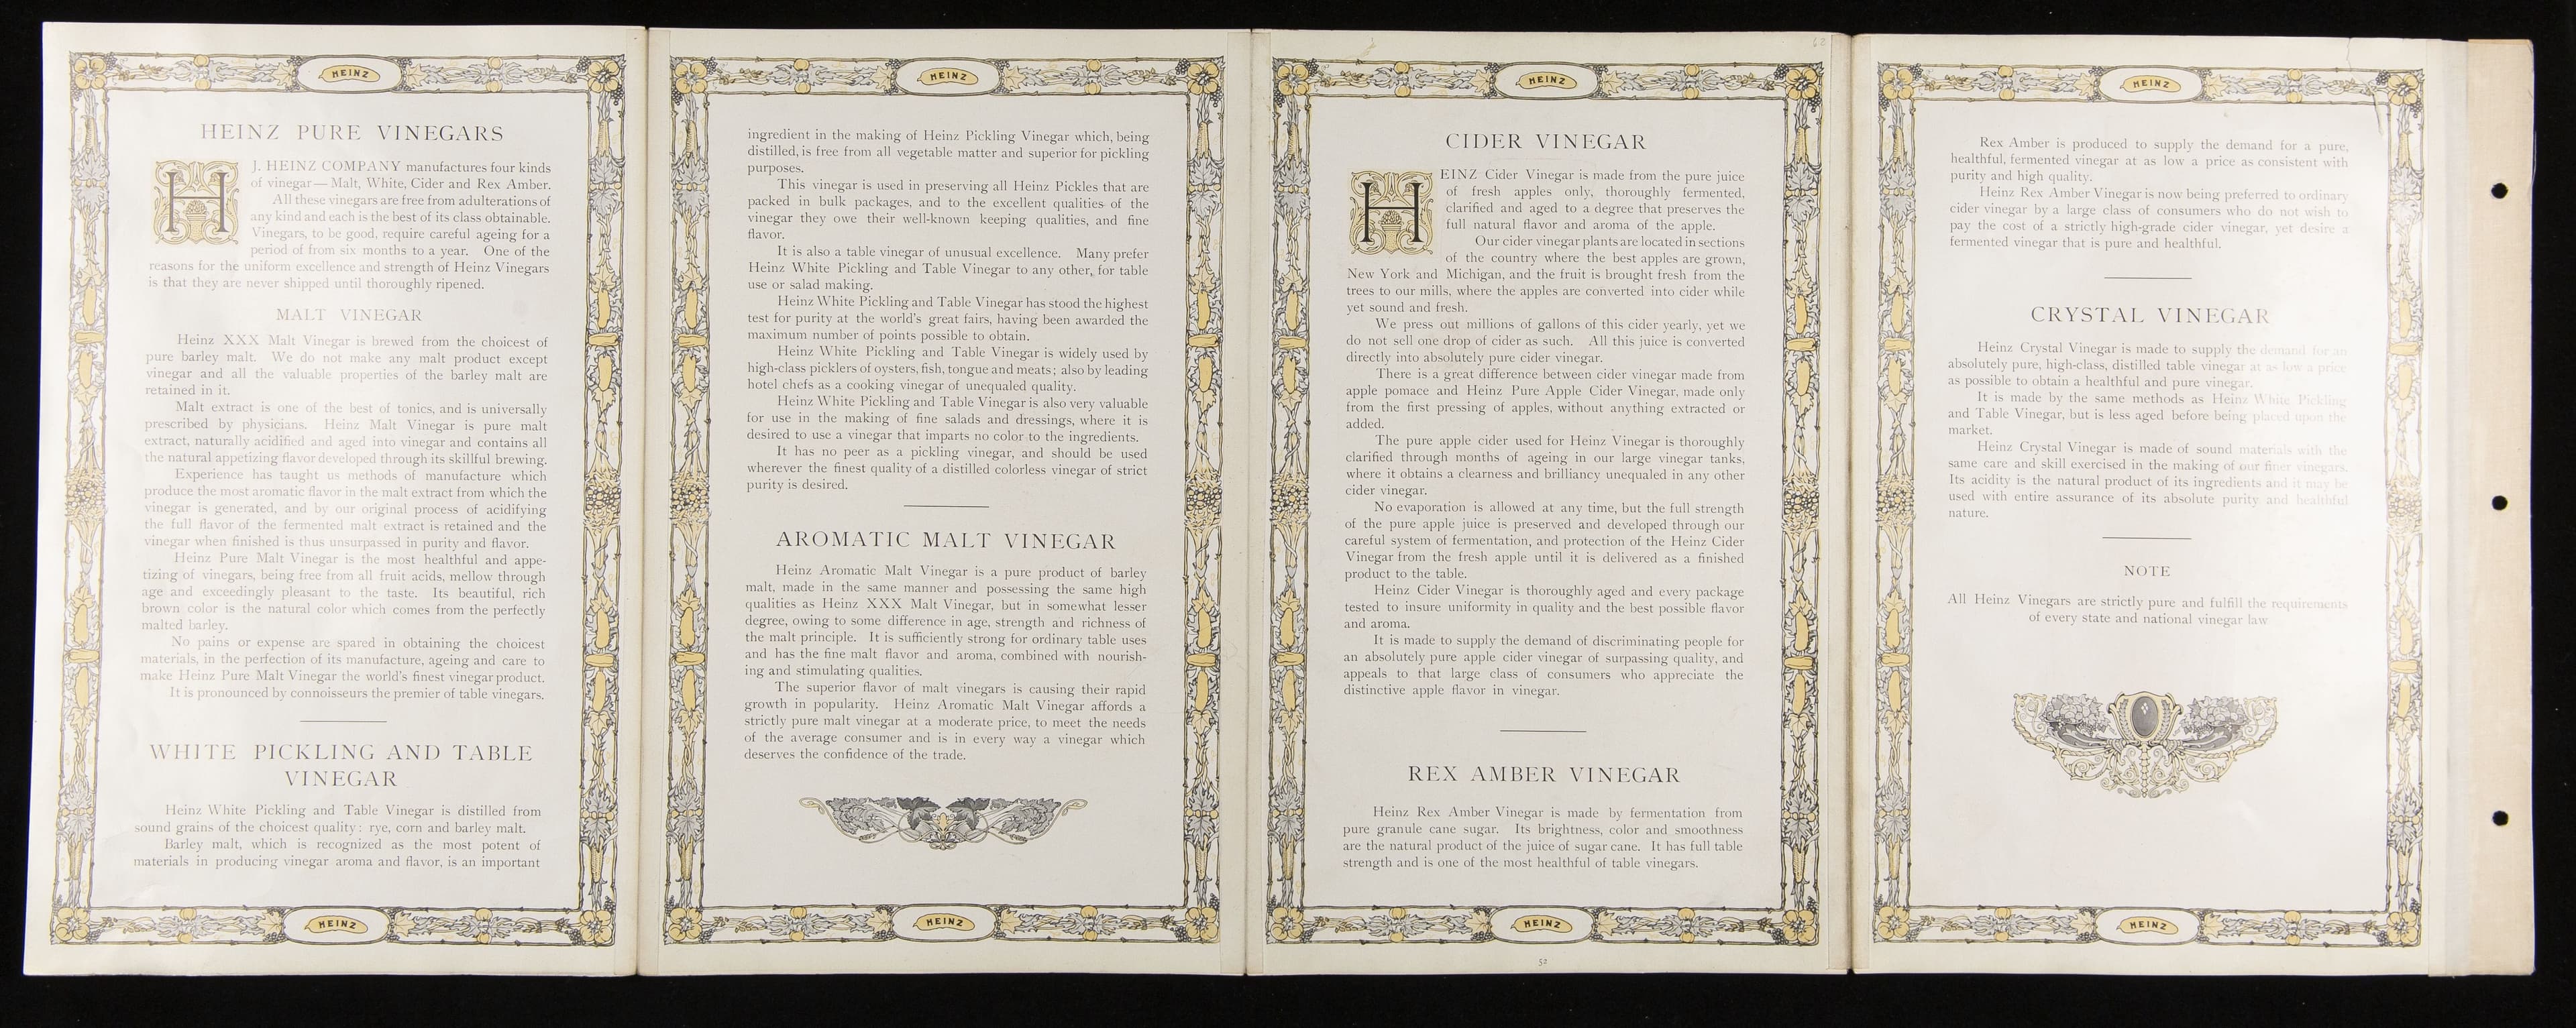 HEINZ
HEINZ PURE VINEGARS
H
J. HEINZ COMPANY manufactures four kinds
of vinegar—Malt, White, Cider and Rex Amber.
All these vinegars are free from adulterations of
any kind and each is the best of its class obtainable.
Vinegars, to be good, require careful ageing for a
period of from six months to a year. One of the
reasons for the uniform excellence and strength of Heinz Vinegars
is that they are never shipped until thoroughly ripened.
MALT VINEGAR
Heinz XXX Malt Vinegar is brewed from the choicest of
pure barley malt. We do not make any malt product except
vinegar and all the valuable properties of the barley malt are
retained in it.
Malt extract is one of the best of tonics, and is universally
prescribed by physicians. Heinz Malt Vinegar is pure malt
extract, naturally acidified and aged into vinegar and contains all
the natural appetizing flavor developed through its skillful brewing.
Experience has taught us methods of manufacture which
produce the most aromatic flavor in the malt extract from which the
vinegar is generated, and by our original process of acidifying
the full flavor of the fermented malt extract is retained and the
vinegar when finished is thus unsurpassed in purity and flavor.
Heinz Pure Malt Vinegar is the most healthful and appe-
tizing of vinegars, being free from all fruit acids, mellow through
age and exceedingly pleasant to the taste. Its beautiful, rich
brown color is the natural color which comes from the perfectly
malted barley.
No pains or expense are spared in obtaining the choicest
materials, in the perfection of its manufacture, ageing and care to
make Heinz Pure Malt Vinegar the world's finest vinegar product.
It is pronounced by connoisseurs the premier of table vinegars.
WHITE PICKLING AND TABLE
VINEGAR
Heinz White Pickling and Table Vinegar is distilled from
sound grains of the choicest quality: rye, corn and barley malt.
Barley malt, which is recognized as the most potent of
materials in producing vinegar aroma and flavor, is an important
HEINZ
HEINZ
ingredient in the making of Heinz Pickling Vinegar which, being
distilled, is free from all vegetable matter and superior for pickling
purposes.
This vinegar is used in preserving all Heinz Pickles that are
packed in bulk packages, and to the excellent qualities of the
vinegar they owe their well-known keeping qualities, and fine
flavor.
It is also a table vinegar of unusual excellence. Many prefer
Heinz White Pickling and Table Vinegar to any other, for table
use or salad making.
Heinz White Pickling and Table Vinegar has stood the highest
test for purity at the world's great fairs, having been awarded the
maximum number of points possible to obtain.
Heinz White Pickling and Table Vinegar is widely used by
high-class picklers of oysters, fish, tongue and meats; also by leading
hotel chefs as a cooking vinegar of unequaled quality.
Heinz White Pickling and Table Vinegar is also very valuable
for use in the making of fine salads and dressings, where it is
desired to use a vinegar that imparts no color to the ingredients.
It has no peer as a pickling vinegar, and should be used
wherever the finest quality of a distilled colorless vinegar of strict
purity is desired.
AROMATIC MALT VINEGAR
Heinz Aromatic Malt Vinegar is a pure product of barley
malt, made in the same manner and possessing the same high
qualities as Heinz XXX Malt Vinegar, but in somewhat lesser
degree, owing to some difference in age, strength and richness of
the malt principle. It is sufficiently strong for ordinary table uses
and has the fine malt flavor and aroma, combined with nourish-
ing and stimulating qualities.
The superior flavor of malt vinegars is causing their rapid
growth in popularity. Heinz Aromatic Malt Vinegar affords a
strictly pure malt vinegar at a moderate price, to meet the needs
of the average consumer and is in every way a vinegar which
deserves the confidence of the trade.
HEINZ
62
HEINZ
CIDER VINEGAR
HEINZ Cider Vinegar is made from the pure juice
of fresh apples only, thoroughly fermented,
clarified and aged to a degree that preserves the
full natural flavor and aroma of the apple.
Our cider vinegar plants are located in sections
of the country where the best apples are grown,
New York and Michigan, and the fruit is brought fresh from the
trees to our mills, where the apples are converted into cider while
yet sound and fresh.
We press out millions of gallons of this cider yearly, yet we
do not sell one drop of cider as such. All this juice is converted
directly into absolutely pure cider vinegar.
There is a great difference between cider vinegar made from
apple pomace and Heinz Pure Apple Cider Vinegar, made only
from the first pressing of apples, without anything extracted or
added.
The pure apple cider used for Heinz Vinegar is thoroughly
clarified through months of ageing in our large vinegar tanks,
where it obtains a clearness and brilliancy unequaled in any other
cider vinegar.
No evaporation is allowed at any time, but the full strength
of the pure apple juice is preserved and developed through our
careful system of fermentation, and protection of the Heinz Cider
Vinegar from the fresh apple until it is delivered as a finished
product to the table.
Heinz Cider Vinegar is thoroughly aged and every package
tested to insure uniformity in quality and the best possible flavor
and aroma.
It is made to supply the demand of discriminating people for
an absolutely pure apple cider vinegar of surpassing quality, and
appeals to that large class of consumers who appreciate the
distinctive apple flavor in vinegar.
REX AMBER VINEGAR
Heinz Rex Amber Vinegar is made by fermentation from
pure granule cane sugar. Its brightness, color and smoothness
are the natural product of the juice of sugar cane. It has full table
strength and is one of the most healthful of table vinegars.
HEINZ
52
HEINZ
Rex Amber is produced to supply the demand for a pure,
healthful, fermented vinegar at as low a price as consistent with
purity and high quality.
Heinz Rex Amber Vinegar is now being preferred to ordinary
cider vinegar by a large class of consumers who do not wish to
pay the cost of a strictly high-grade cider vinegar, yet desire a
fermented vinegar that is pure and healthful.
CRYSTAL VINEGAR
Heinz Crystal Vinegar is made to supply the demand for an
absolutely pure, high-class, distilled table vinegar at as low a price
as possible to obtain a healthful and pure vinegar.
It is made by the same methods as Heinz White Pickling
and Table Vinegar, but is less aged before being placed upon the
market.
Heinz Crystal Vinegar is made of sound materials with the
same care and skill exercised in the making of our finer vinegars.
Its acidity is the natural product of its ingredients and it may be
used with entire assurance of its absolute purity and healthful
nature.
NOTE
All Heinz Vinegars are strictly pure and fulfill the requirements
of every state and national vinegar law
HEINZ